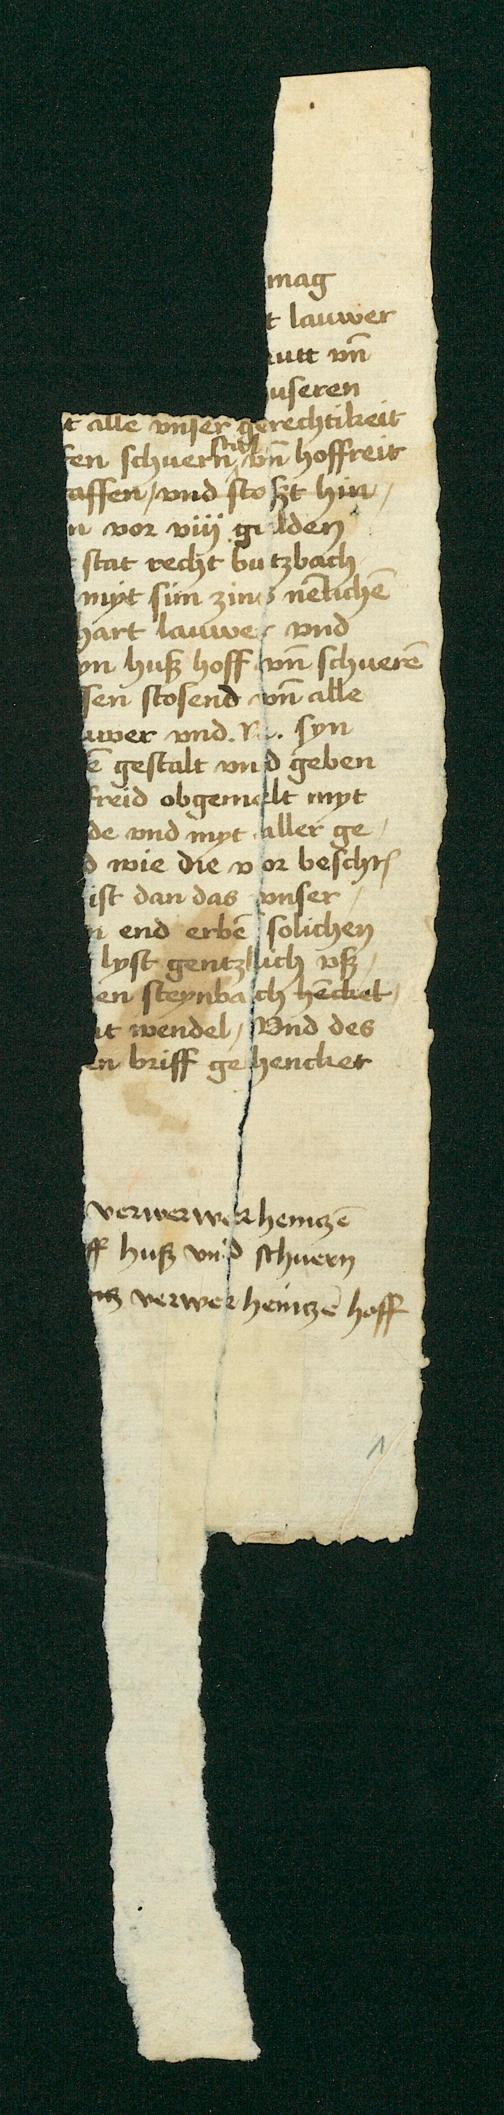 mag
t lauwer
utt vn̄
useren
t alle vnser gerechtikeit
fen schuern vn̄ hoffreit
affen / vnd stoszt hin /
n vor viij gulden
stat recht butzbach
myt sim zins nēlichē
hart lauwer vnd
yn husz hoff vn̄ schuerē
sen stosend vn̄ alle
uwer vnd . syn
ē gestalt vnd geben
freid obgemelt myt
de vnd myt aller ge /
d wie die vor beschr
ist dan das vnser /
n end erbē solichen
lyst gentzlich vsz /
en steynbach hēcket /
t wendel / Vnd des
en briff gehencket
verwer heintzē
ff husz vnd schuern
verwer heintzē hoff
1